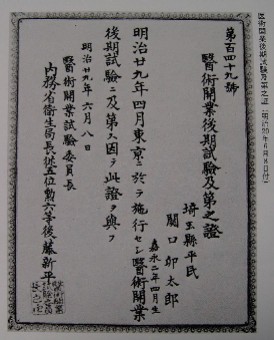 醫術開業後期試験及第之証(明治29年6月8日付)
第百四十九號
醫術開業後期試驗及第之證
埼玉縣平民
關口卯太郎
嘉永二年四月生
明治廿九年四月東京ニ於テ施行セシ醫術開業
後期試驗ニ及第ス因テ此證ヲ與フ
明治廿九年六月八日
醫術開業試驗委員長
内務省衛生局長從五位勲六等後藤新平